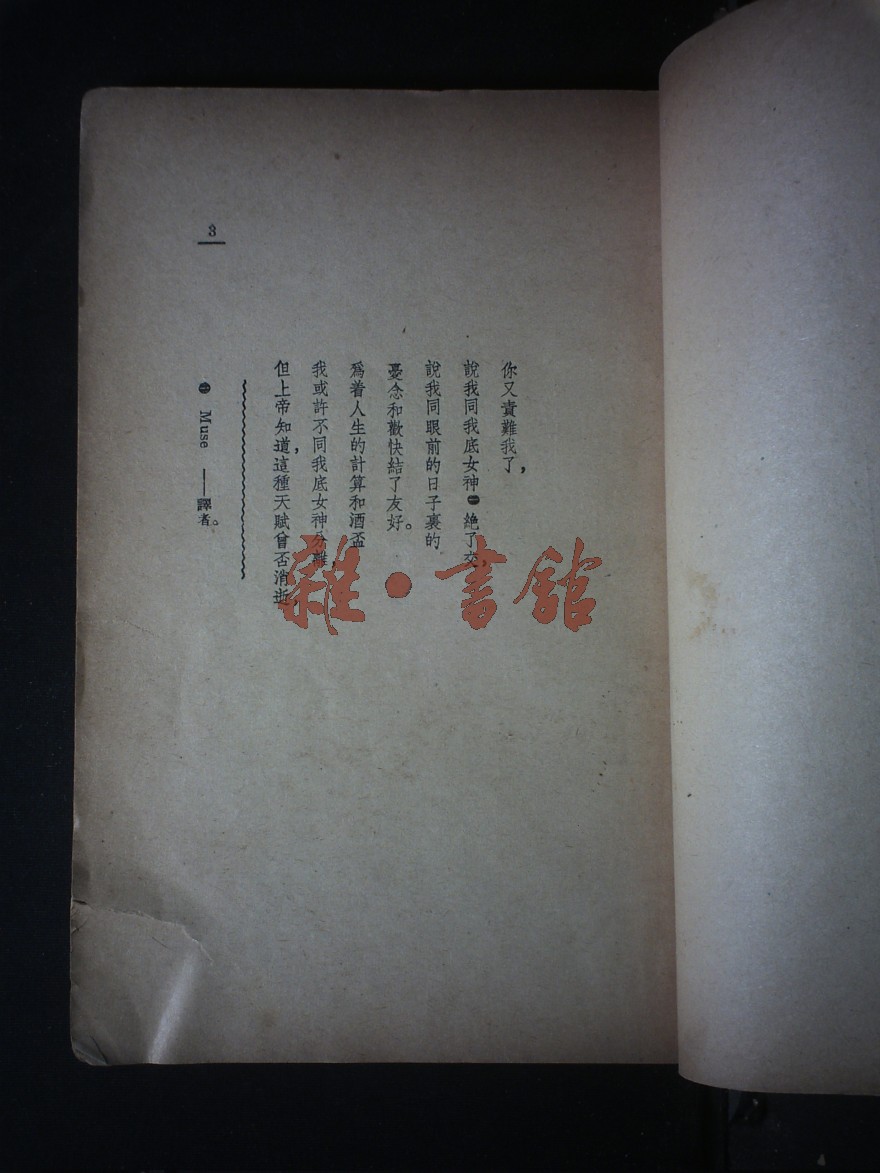 你又責難我了，
說我同我底女神㊀絶了交，
說我同眼前的日子裏的
憂念和歡快結了友好。
爲着人生的計算和酒盃
我或許不同我底女神分離，
但上帝知道，這種天賦曾否消逝，
㊀ Muse ——譯者。
3
雜·書館